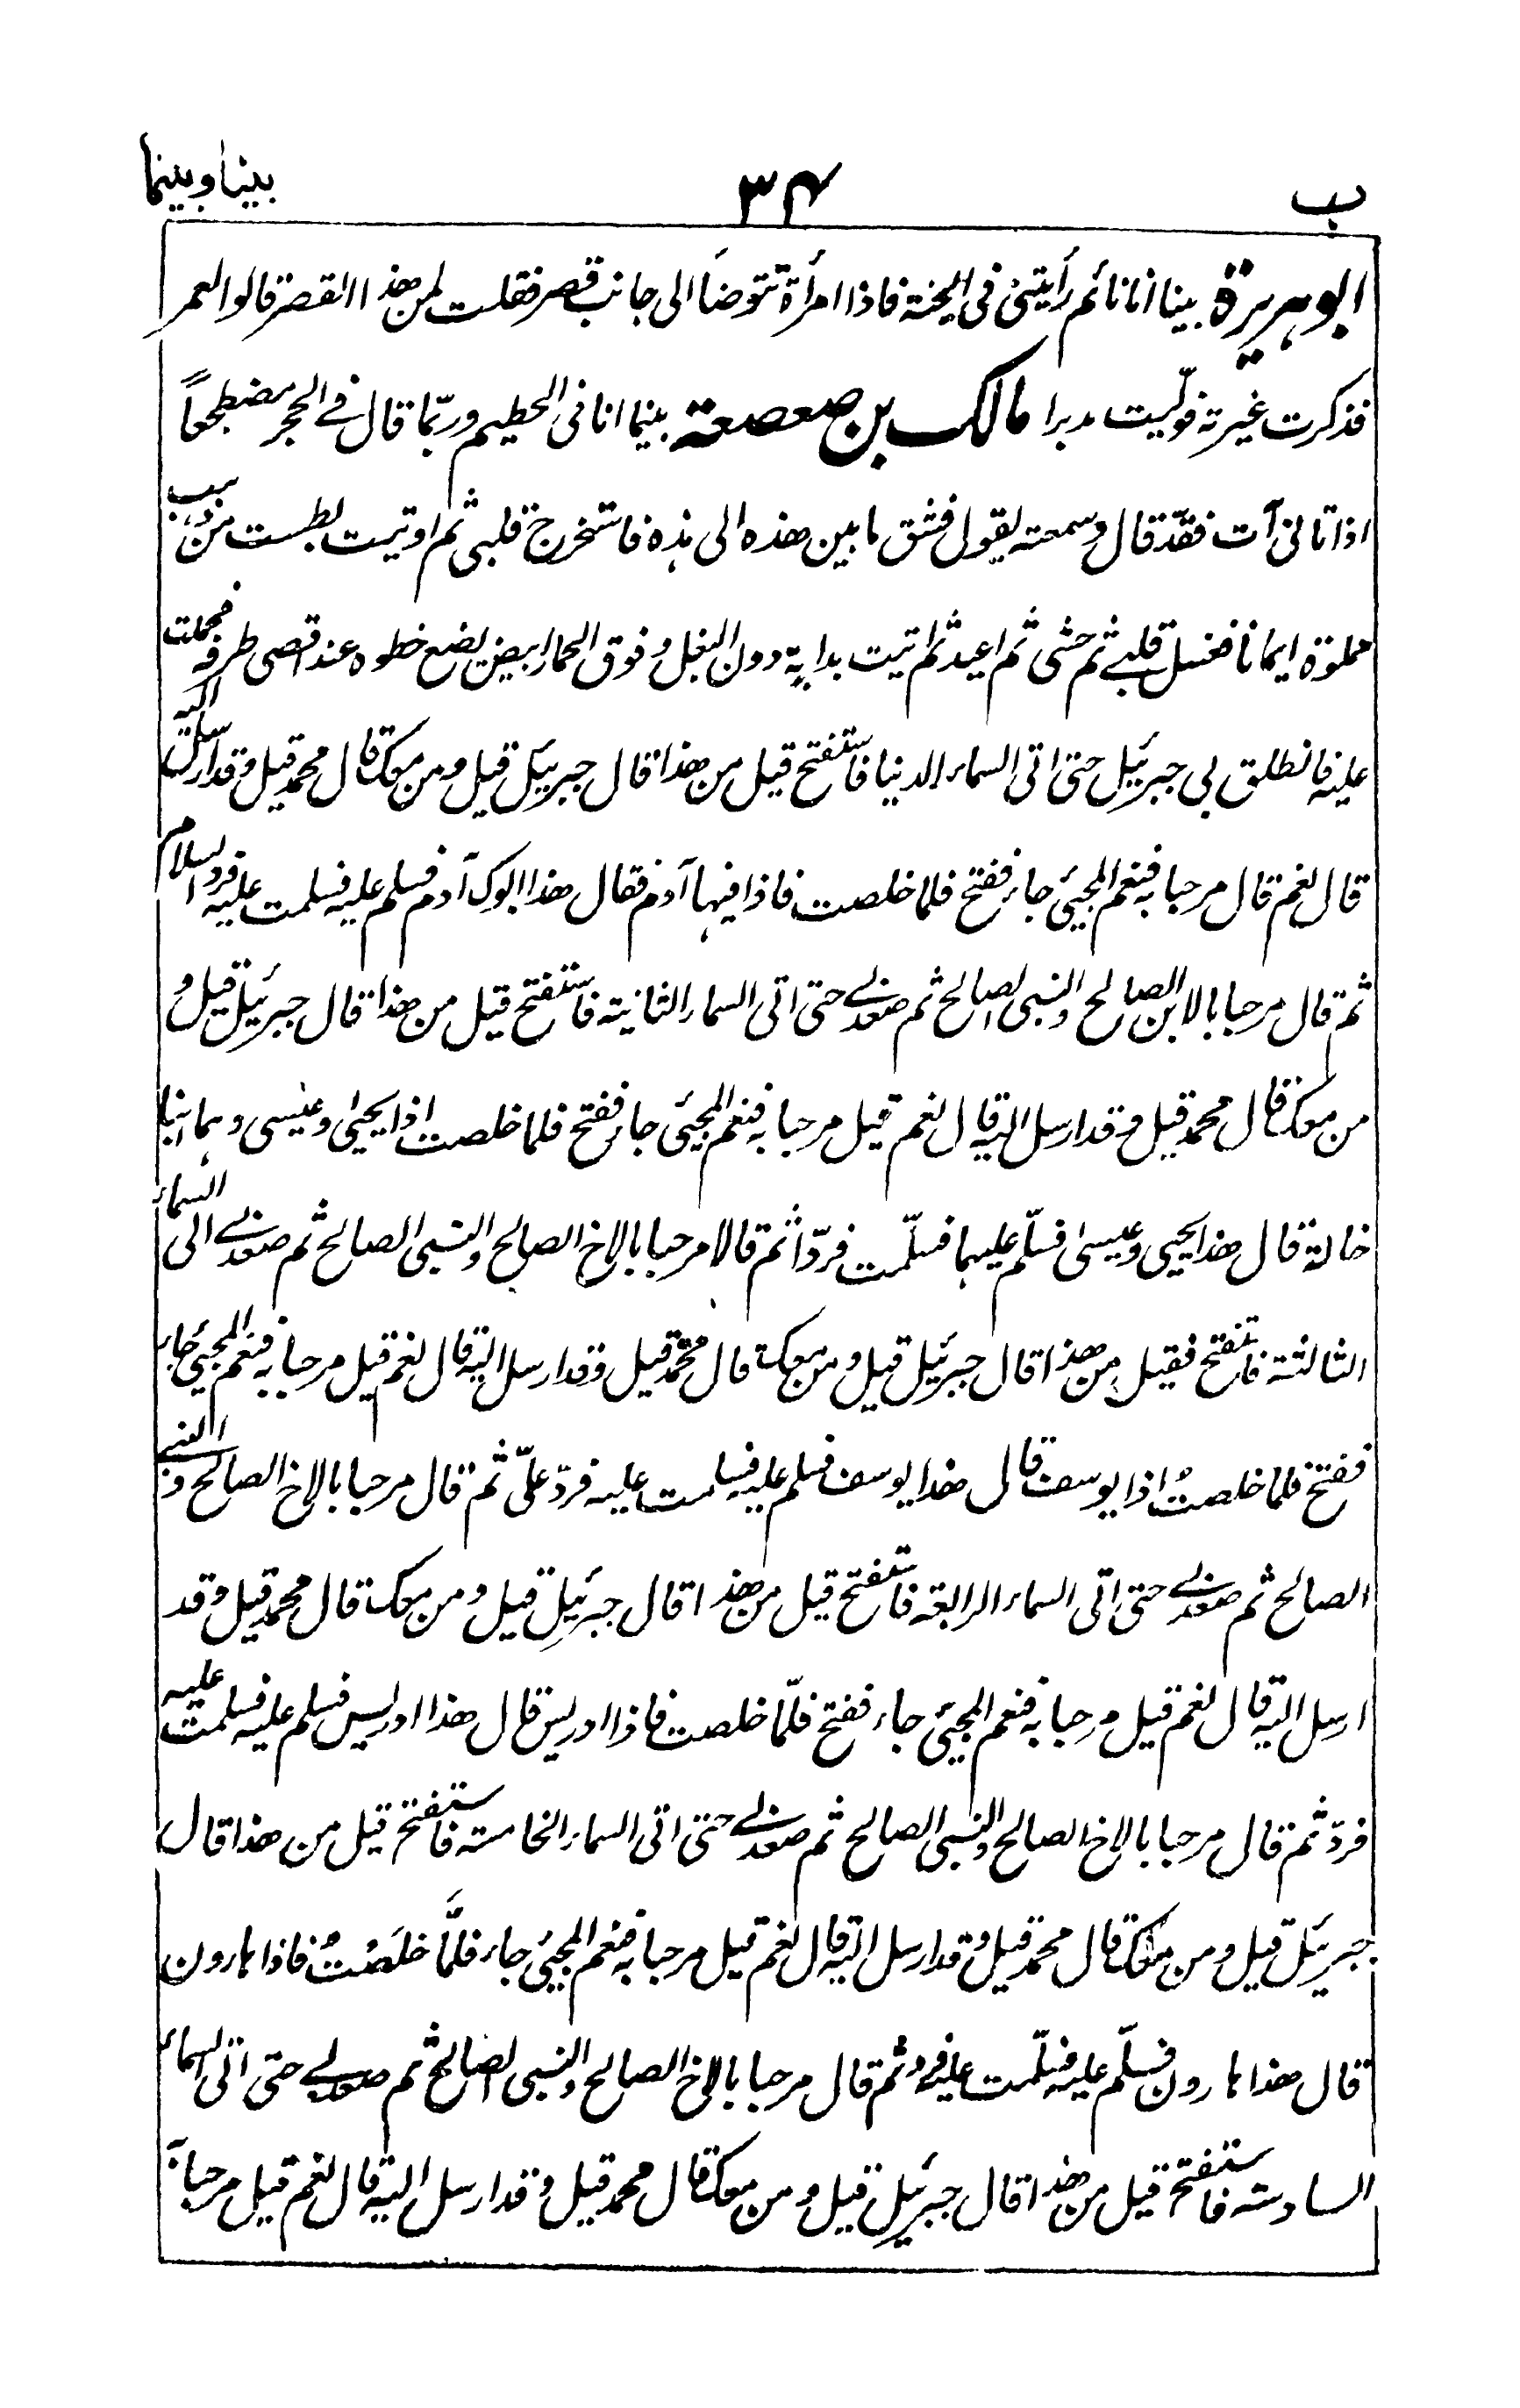 ب
٣٤
بينا وبينما
ابو هريرة بينا انا نائم رأيتنى فى الجنة فاذا امرأة تتوضأ الى جانب قصر فقلت لمن هذا القصر قالوا لعمر
فذكرت غيرته فولّيت مدبرا مالك بن صعصعة بينما انا فى الحطيم وربّما قال فى الحجر مضطجعاً
اذ اتانى آت فقدّ قال وسمعته يقول فشق ما بين هذه الى هذه فاستخرج قلبى ثم اوتيت بطست من ذهب
مملوّة ايمانا فغسل قلبى ثم حشى ثم اعيد ثم اتيت بدابة دون البغل وفوق الحمار ابيض يضع خطوه عند اقصى طرفه فحملت
عليه فانطلق بى جبرئيل حتى اتى السماء الدنيا فاستفتح قيل من هذا قال جبرئيل قيل ومن معك قال محمد قيل وقد ارسل اليه
قال نعم قال مرحبا به فنعم المجيئ جاء ففتح فلما خلصت فاذا فيها آدم فقال هذا ابوك آدم فسلم عليه فسلمت عليه فرد السلام
ثم قال مرحبا بالابن الصالح والنبى الصالح ثم صعد بى حتى اتى السماء الثانية فاستفتح قيل من هذا قال جبرئيل قيل و
من معك قال محمد قيل وقد ارسل اليه قال نعم قيل مرحبا به فنعم المجيئ جاء ففتح فلما خلصت اذا يحيى وعيسى وهما ابنا
خالة قال هذا يحيى وعيسى فسلّم عليهما فسلّمت فردّا ثم قالا مرحبا بالاخ الصالح والنبى الصالح ثم صعد بى الى السماء
الثالثة فاستفتح فقيل من هذا قال جبرئيل قيل ومن معك قال محمّد قيل وقد ارسل اليه قال نعم قيل مرحبا به فنعم المجيئ جاء
ففتح فلما خلصتُ اذا يوسف قال هذا يوسف فسلم عليه فسلمت عليه فردّ علىّ ثم قال مرحبا بالاخ الصالح والنبى
الصالح ثم صعد بى حتى اتى السماء الرابعة فاستفتح قيل من هذا قال جبرئيل قيل ومن معك قال محمد قيل وقد
ارسل اليه قال نعم قيل مرحبا به فنعم المجيئ جاء ففتح فلمّا خلصت فاذا ادريس قال هذا ادريس فسلم عليه فسلمت عليه
فردّ ثم قال مرحبا بالاخ الصالح والنبى الصالح ثم صعد بى حتى اتى السماء الخامسة فاستفتح قيل من هذا قال
جبرئيل قيل ومن معك قال محمد قيل وقد ارسل اليه قال نعم قيل مرحبا به فنعم المجيئ جاء فلمَّا خلَصْتُ فاذا هارون
قال هذا هارون فسلّم عليه فسلّمت عليه فرد ثم قال مرحبا بالاخ الصالح والنبى الصالح ثم صعد بى حتى اتى السماء
السادسة فاستفتح قيل من هذا قال جبرئيل قيل ومن معك قال محمد قيل وقد ارسل اليه قال نعم قيل مرحبا به